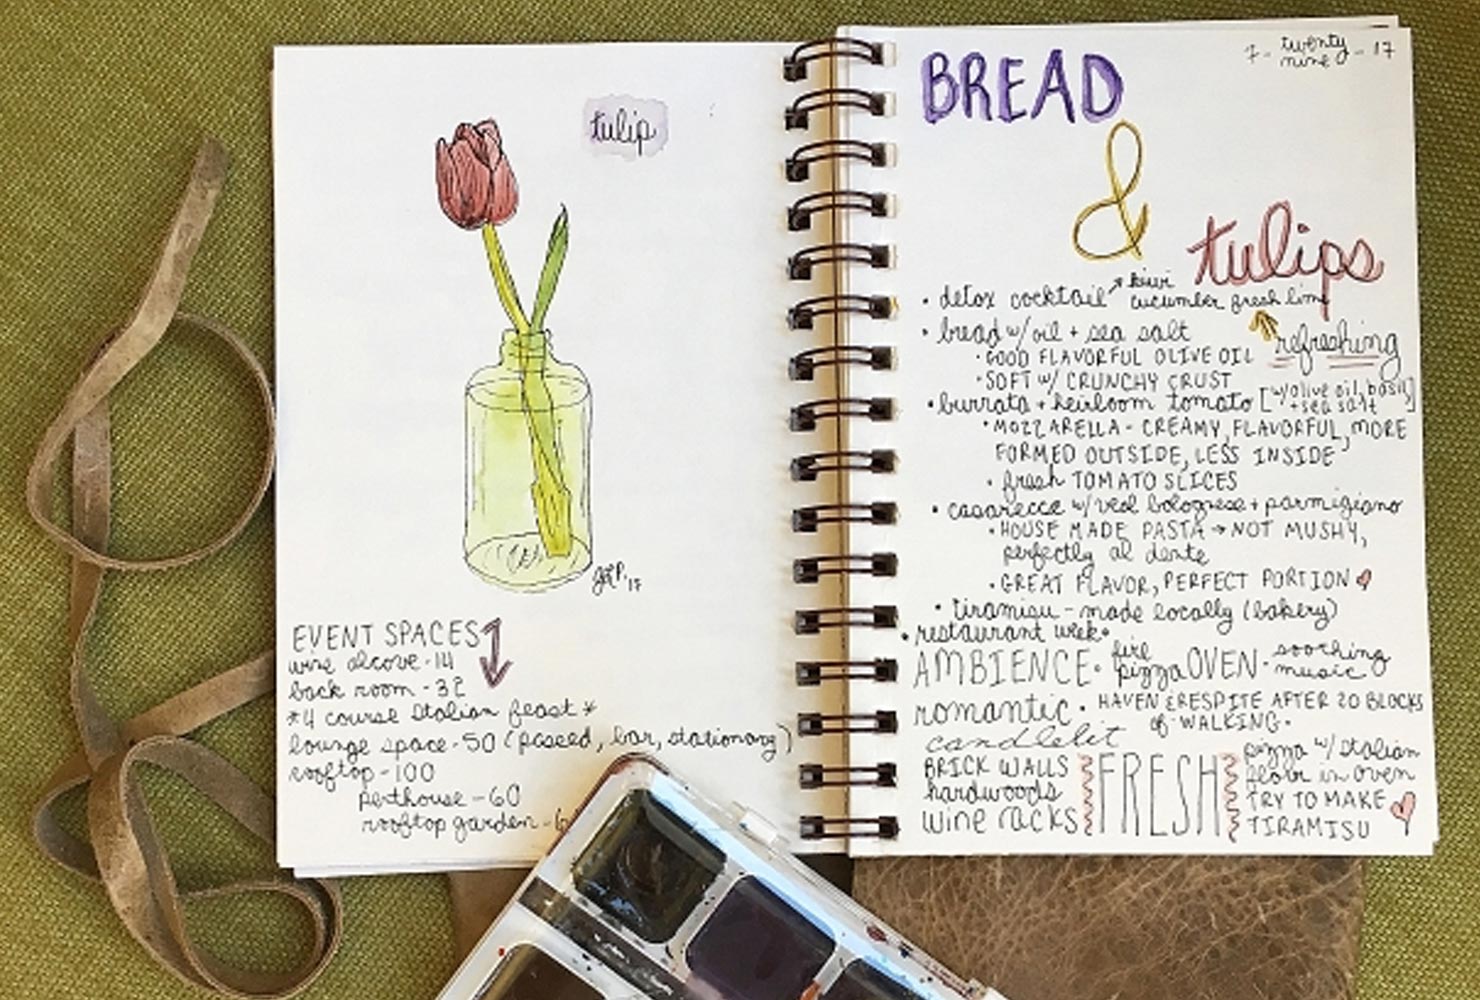 tulip
JLP. '17
EVENT SPACES
wine alcove - 14
back room - 32
*4 course Italian feast*
lounge space - 50 (passed, bar, stationary)
rooftop - 100
penthouse - 60
rooftop garden - 6
7 - twenty nine - 17
BREAD
&
tulips
• detox cocktail kiwi
cucumber fresh lime
• bread w/ oil + sea salt
refreshing
• GOOD FLAVORFUL OLIVE OIL
• SOFT w/ CRUNCHY CRUST
• burrata + heirloom tomato [w/ olive oil, basil,
+ sea salt]
• MOZZARELLA - CREAMY, FLAVORFUL, MORE
FORMED OUTSIDE, LESS INSIDE
• fresh TOMATO SLICES
• casarecce w/ veal bolognese + parmigiano
• HOUSE MADE PASTA → NOT MUSHY,
perfectly al dente
• GREAT FLAVOR, PERFECT PORTION
• tiramisu - made locally (bakery)
• restaurant week •
AMBIENCE • fire
pizza OVEN • soothing
music
romantic • HAVEN & RESPITE AFTER 20 BLOCKS
of WALKING •
candlelit
BRICK WALLS
hardwoods
wine racks
FRESH
pizza w/ Italian
flour in oven
TRY TO MAKE
TIRAMISU